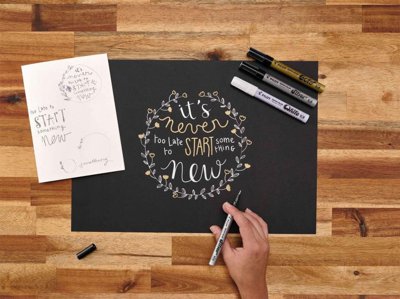 it's
never
too Late
to
START
some
thing
new
it's
never
too Late
to
START
something
NEW
something